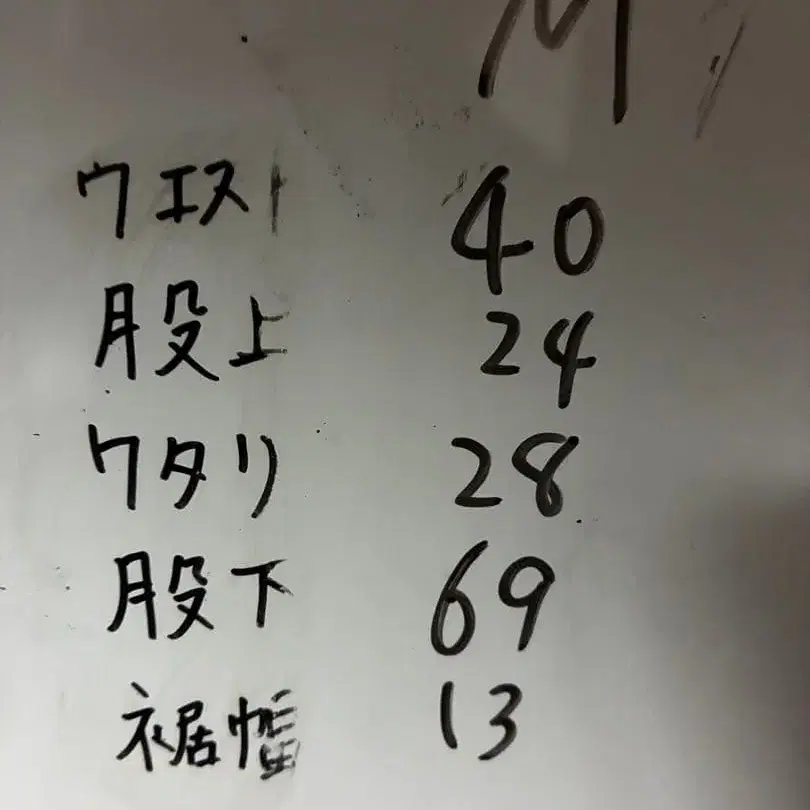 M
ウエスト 40
股上 24
ワタリ 28
股下 69
裾幅 13